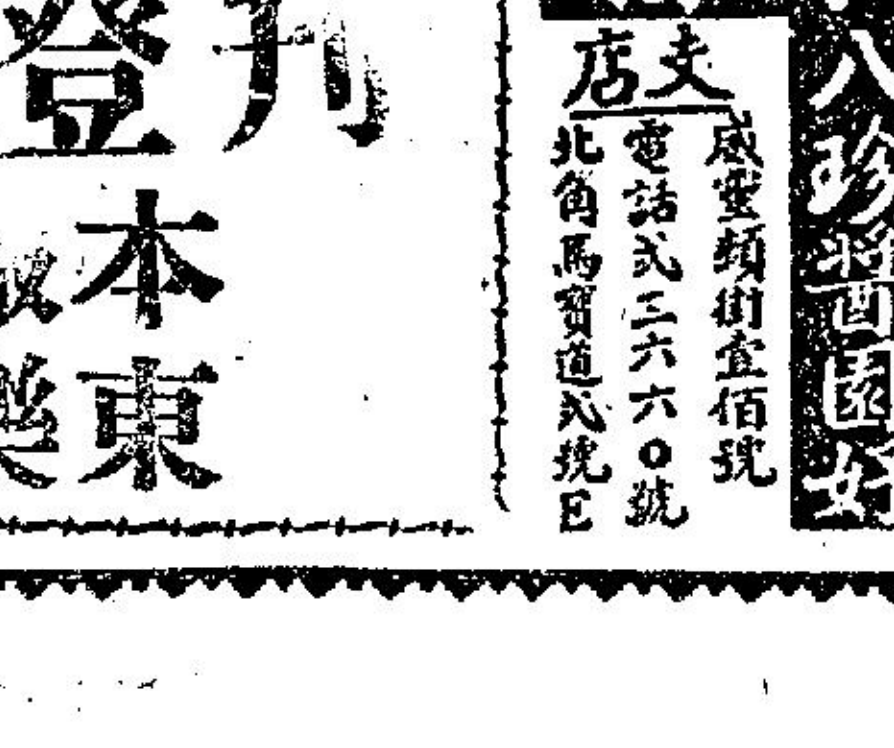 八珍醬園
支店
威靈頓街壹佰號
電話弍三六六〇號
北角馬寶道弍號E
本東
登